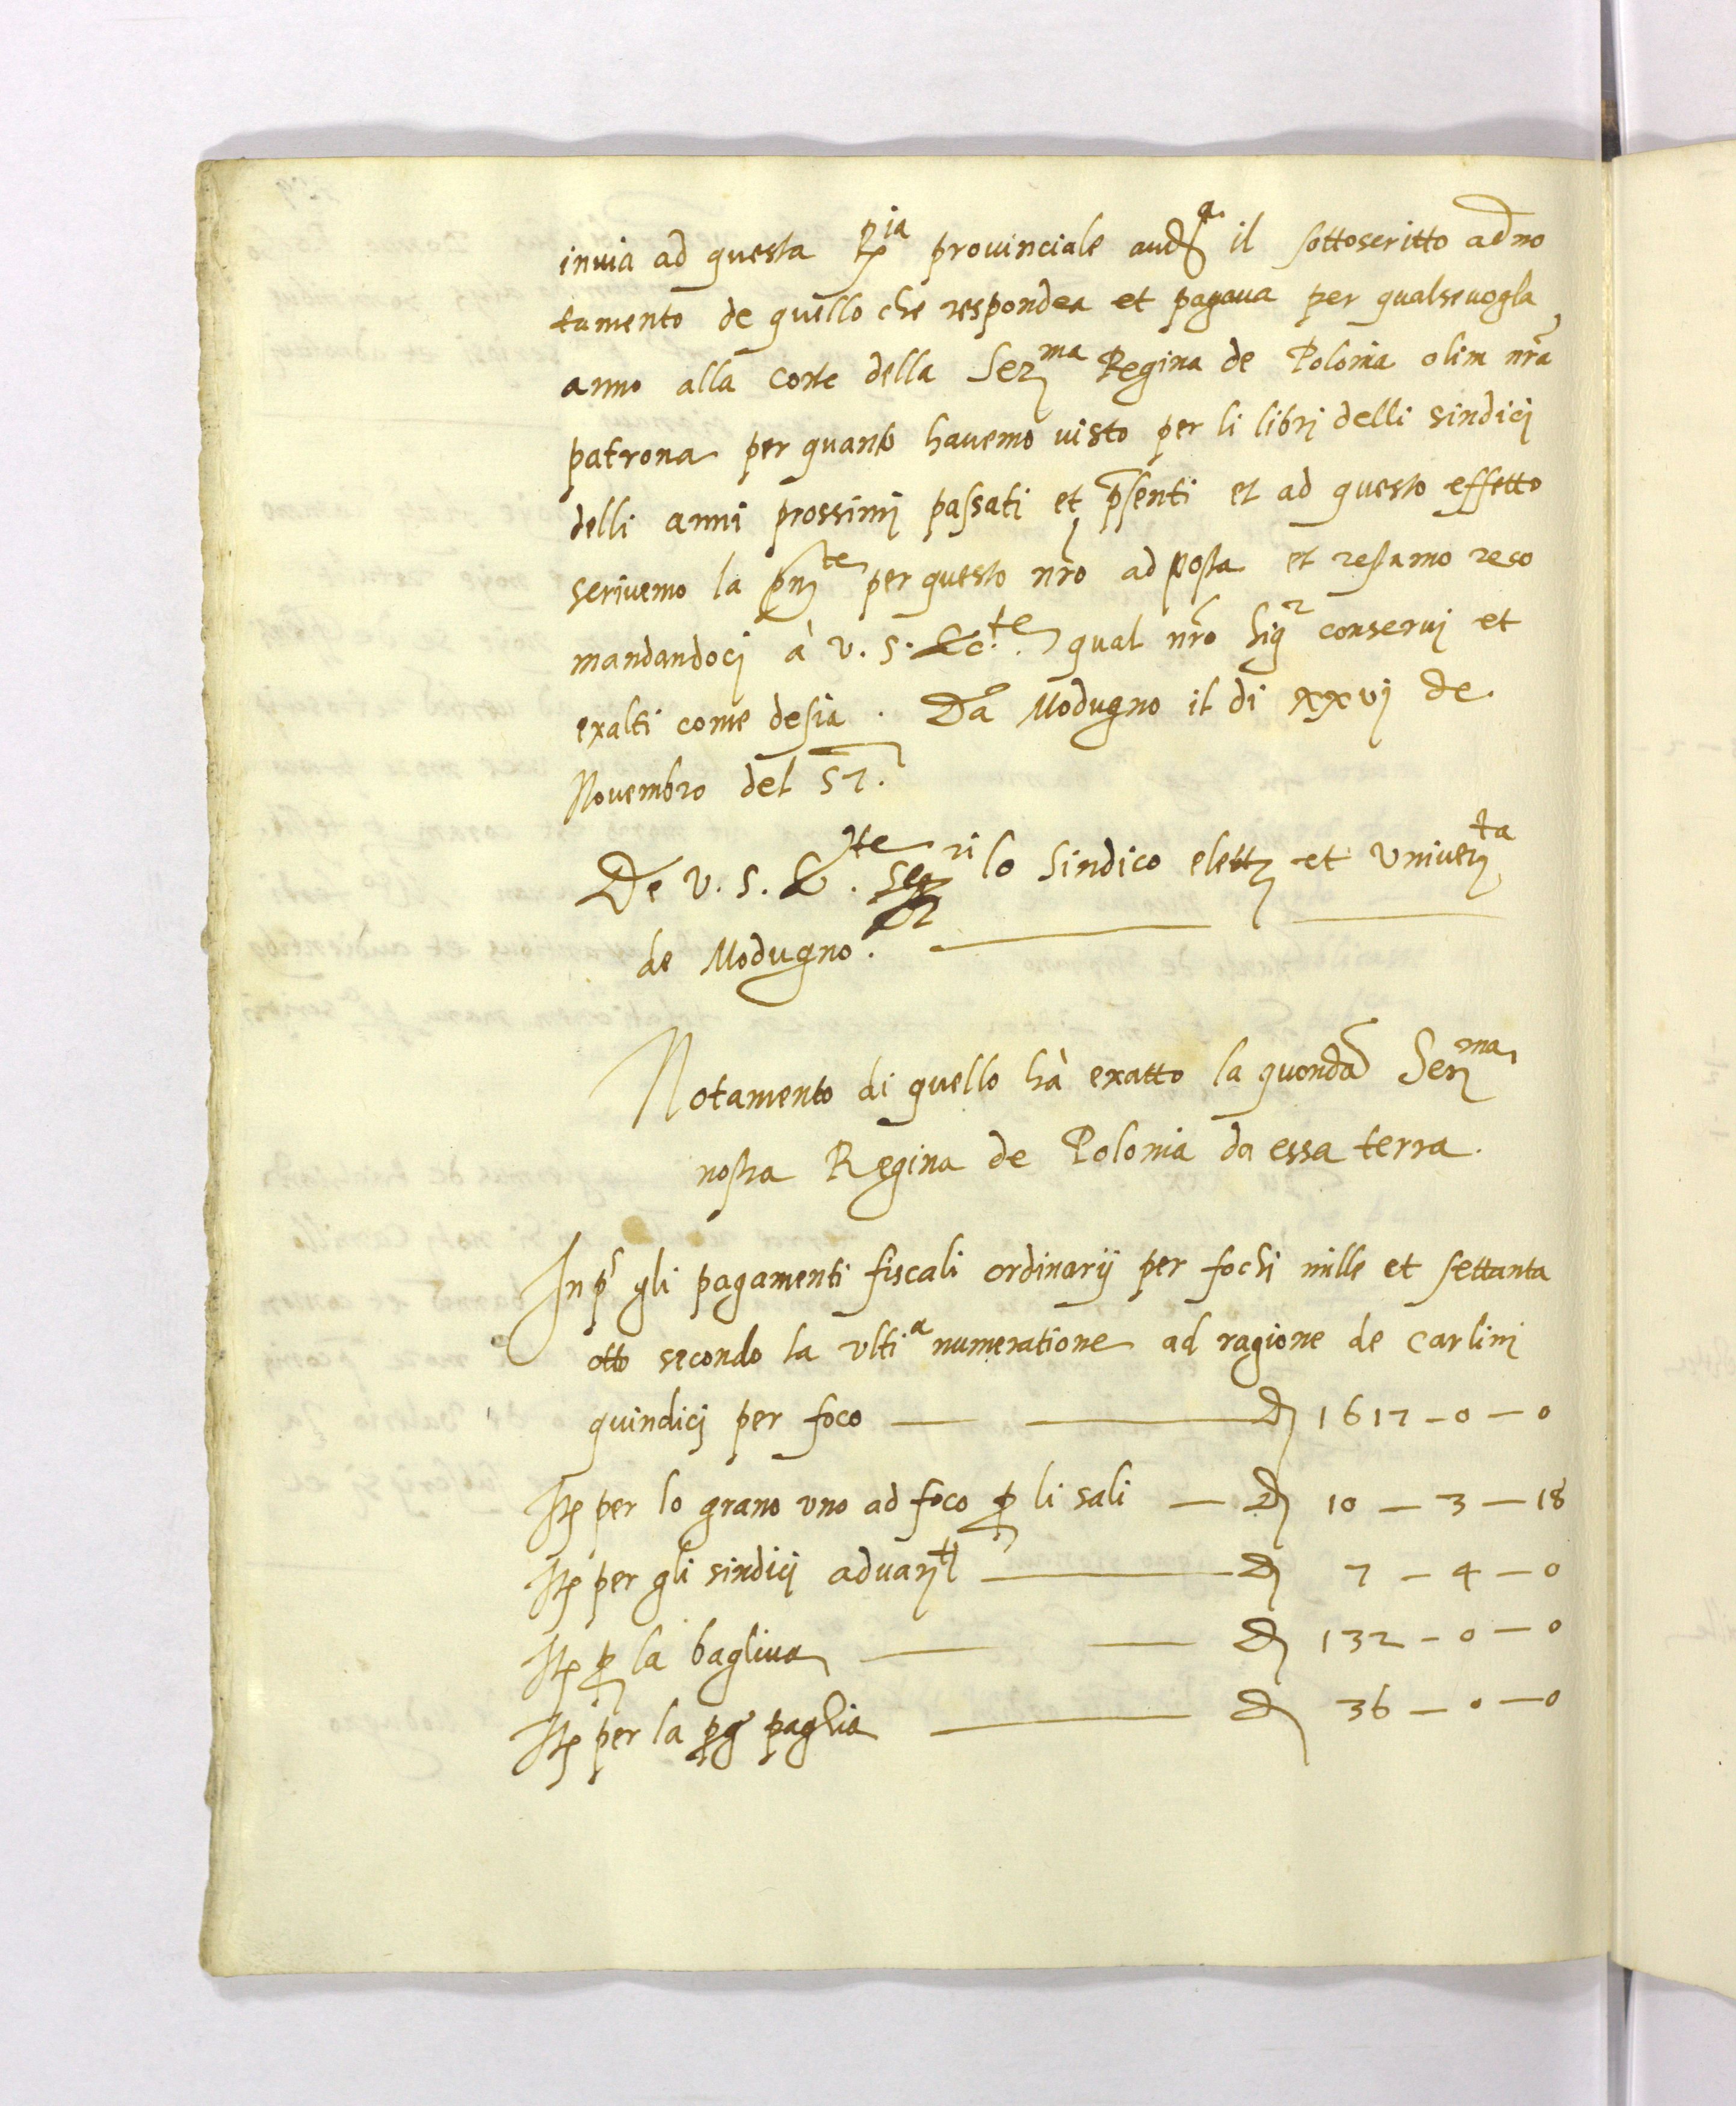 invia ad questa R.ia provinciale aud.a il sottoscritto adno
tamento de quello che respondea et pagava per qualsevogla
anno alla corte della Ser.ma Regina de Polonia olim nr̄a
patrona per quanto havemo visto per li librj delli sindicj
delli anni prossimj passati et p̄senti et ad questo effetto
scrivemo la pn̄te per questo nr̄o ad posta et restamo reco
mandandocj à v. s. Ecc.te qual nr̄o Sig.r conservj et
exalti come desia. Da Modugno il di xxvj de
Novembro del 57.
De v. s. E.te ser.ri lo Sindico elettj et Univer.ta
de Modugno.
Notamento di quello hà exatto la quondā Ser.ma
nostra Regina de Polonia da essa terra.
In p.s gli pagamenti fiscali ordinarij per fochi mille et settanta
otto secondo la ulti.a numeratione ad ragione de carlinj
quindicj per foco — d. 1617 – 0 – 0
It. per lo grano uno ad foco p li sali — d. 10 – 3 – 18
It. per gli sindicj — d. 7 – 4 – 0
It. p la bagliva — d. 132 – 0 – 0
It. per la paglia — d. 36 – 0 – 0